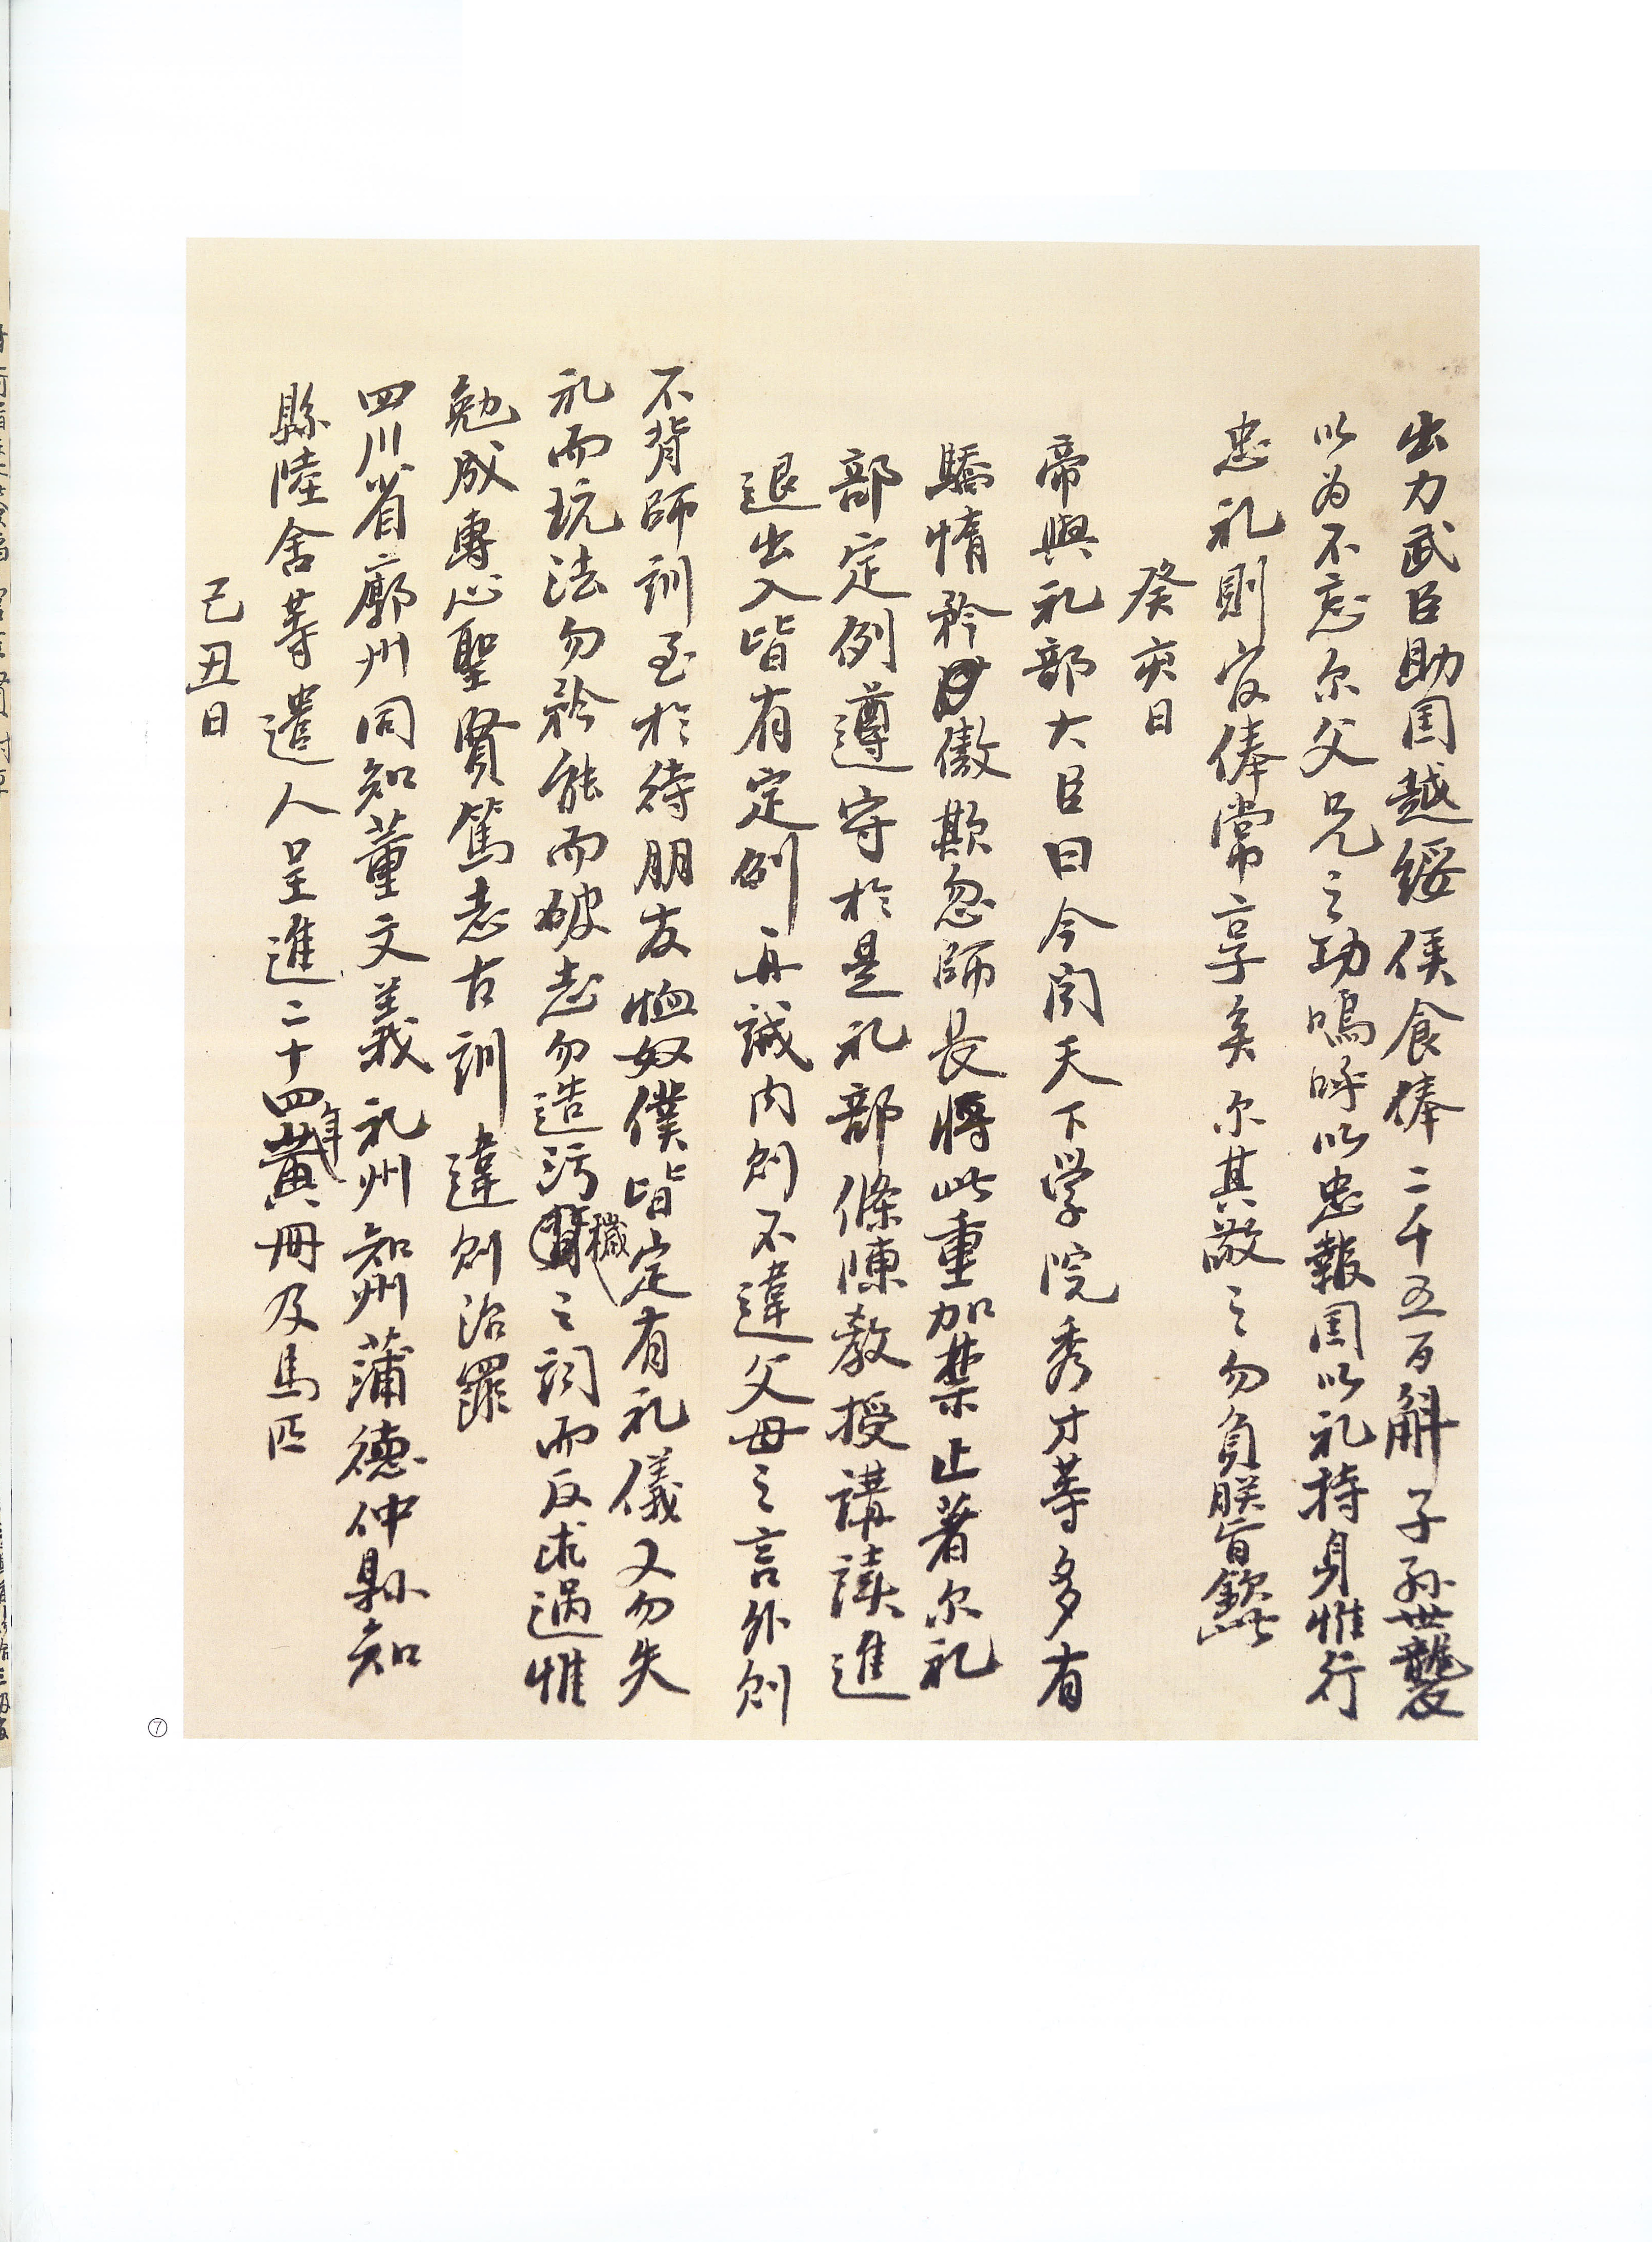 出力武臣助国越綏侯食俸二千五百斛子孫世襲
以为不忘尔父兄之功嗚呼以忠報国以礼持身惟行
忠礼則官俸常享矣尔其敬之勿負朕旨欽此
癸亥日
帝與礼部大臣曰今闻天下学院秀才等多有
驕惰矜傲欺忽師長將此重加禁止著尔礼
部定例遵守於是礼部條陳教授講讀進
退出入皆有定例再誡内则不違父母之言外则
不背師訓至於待朋友恤奴僕皆定有礼儀又勿失
礼而玩法勿矜能而破志勿造污穢之詞而反求過惟
勉成專心聖賢篤志古訓違则治罪
四川省廓州同知董文義礼州知州蒲德仲縣知
縣陸舍等遣人呈進二十四年黄冊及馬匹
己丑日
⑦